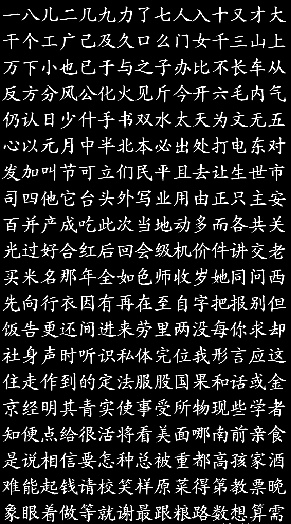 一八儿二几九力了七人入十又才大
干个工广己及久口么门女千三山上
万下小也已于与之子办比不长车从
反方分风公化火见斤今开六毛内气
仍认日少什手书双水太天为文无五
心以元月中半北本必出处打电东对
发加叫节可立们民平且去让生世市
司四他它台头外写业用由正只主安
百并产成吃此次当地动多而各共关
光过好合红后回会级机价件讲交老
买米名那年全如色师收岁她同问西
先向行衣因有再在至自字把报别但
饭告更还间进来劳里两没每你求却
社身声时听识私体完位我形言应这
住走作到的定法服股国果和话或金
京经明其青实使事受所物现些学者
知便点给很活将看美面哪南前亲食
是说相信要怎种总被重都高孩家酒
难能起钱请校笑样原菜得第教票晚
象眼着做等就谢最跟粮路数想算需